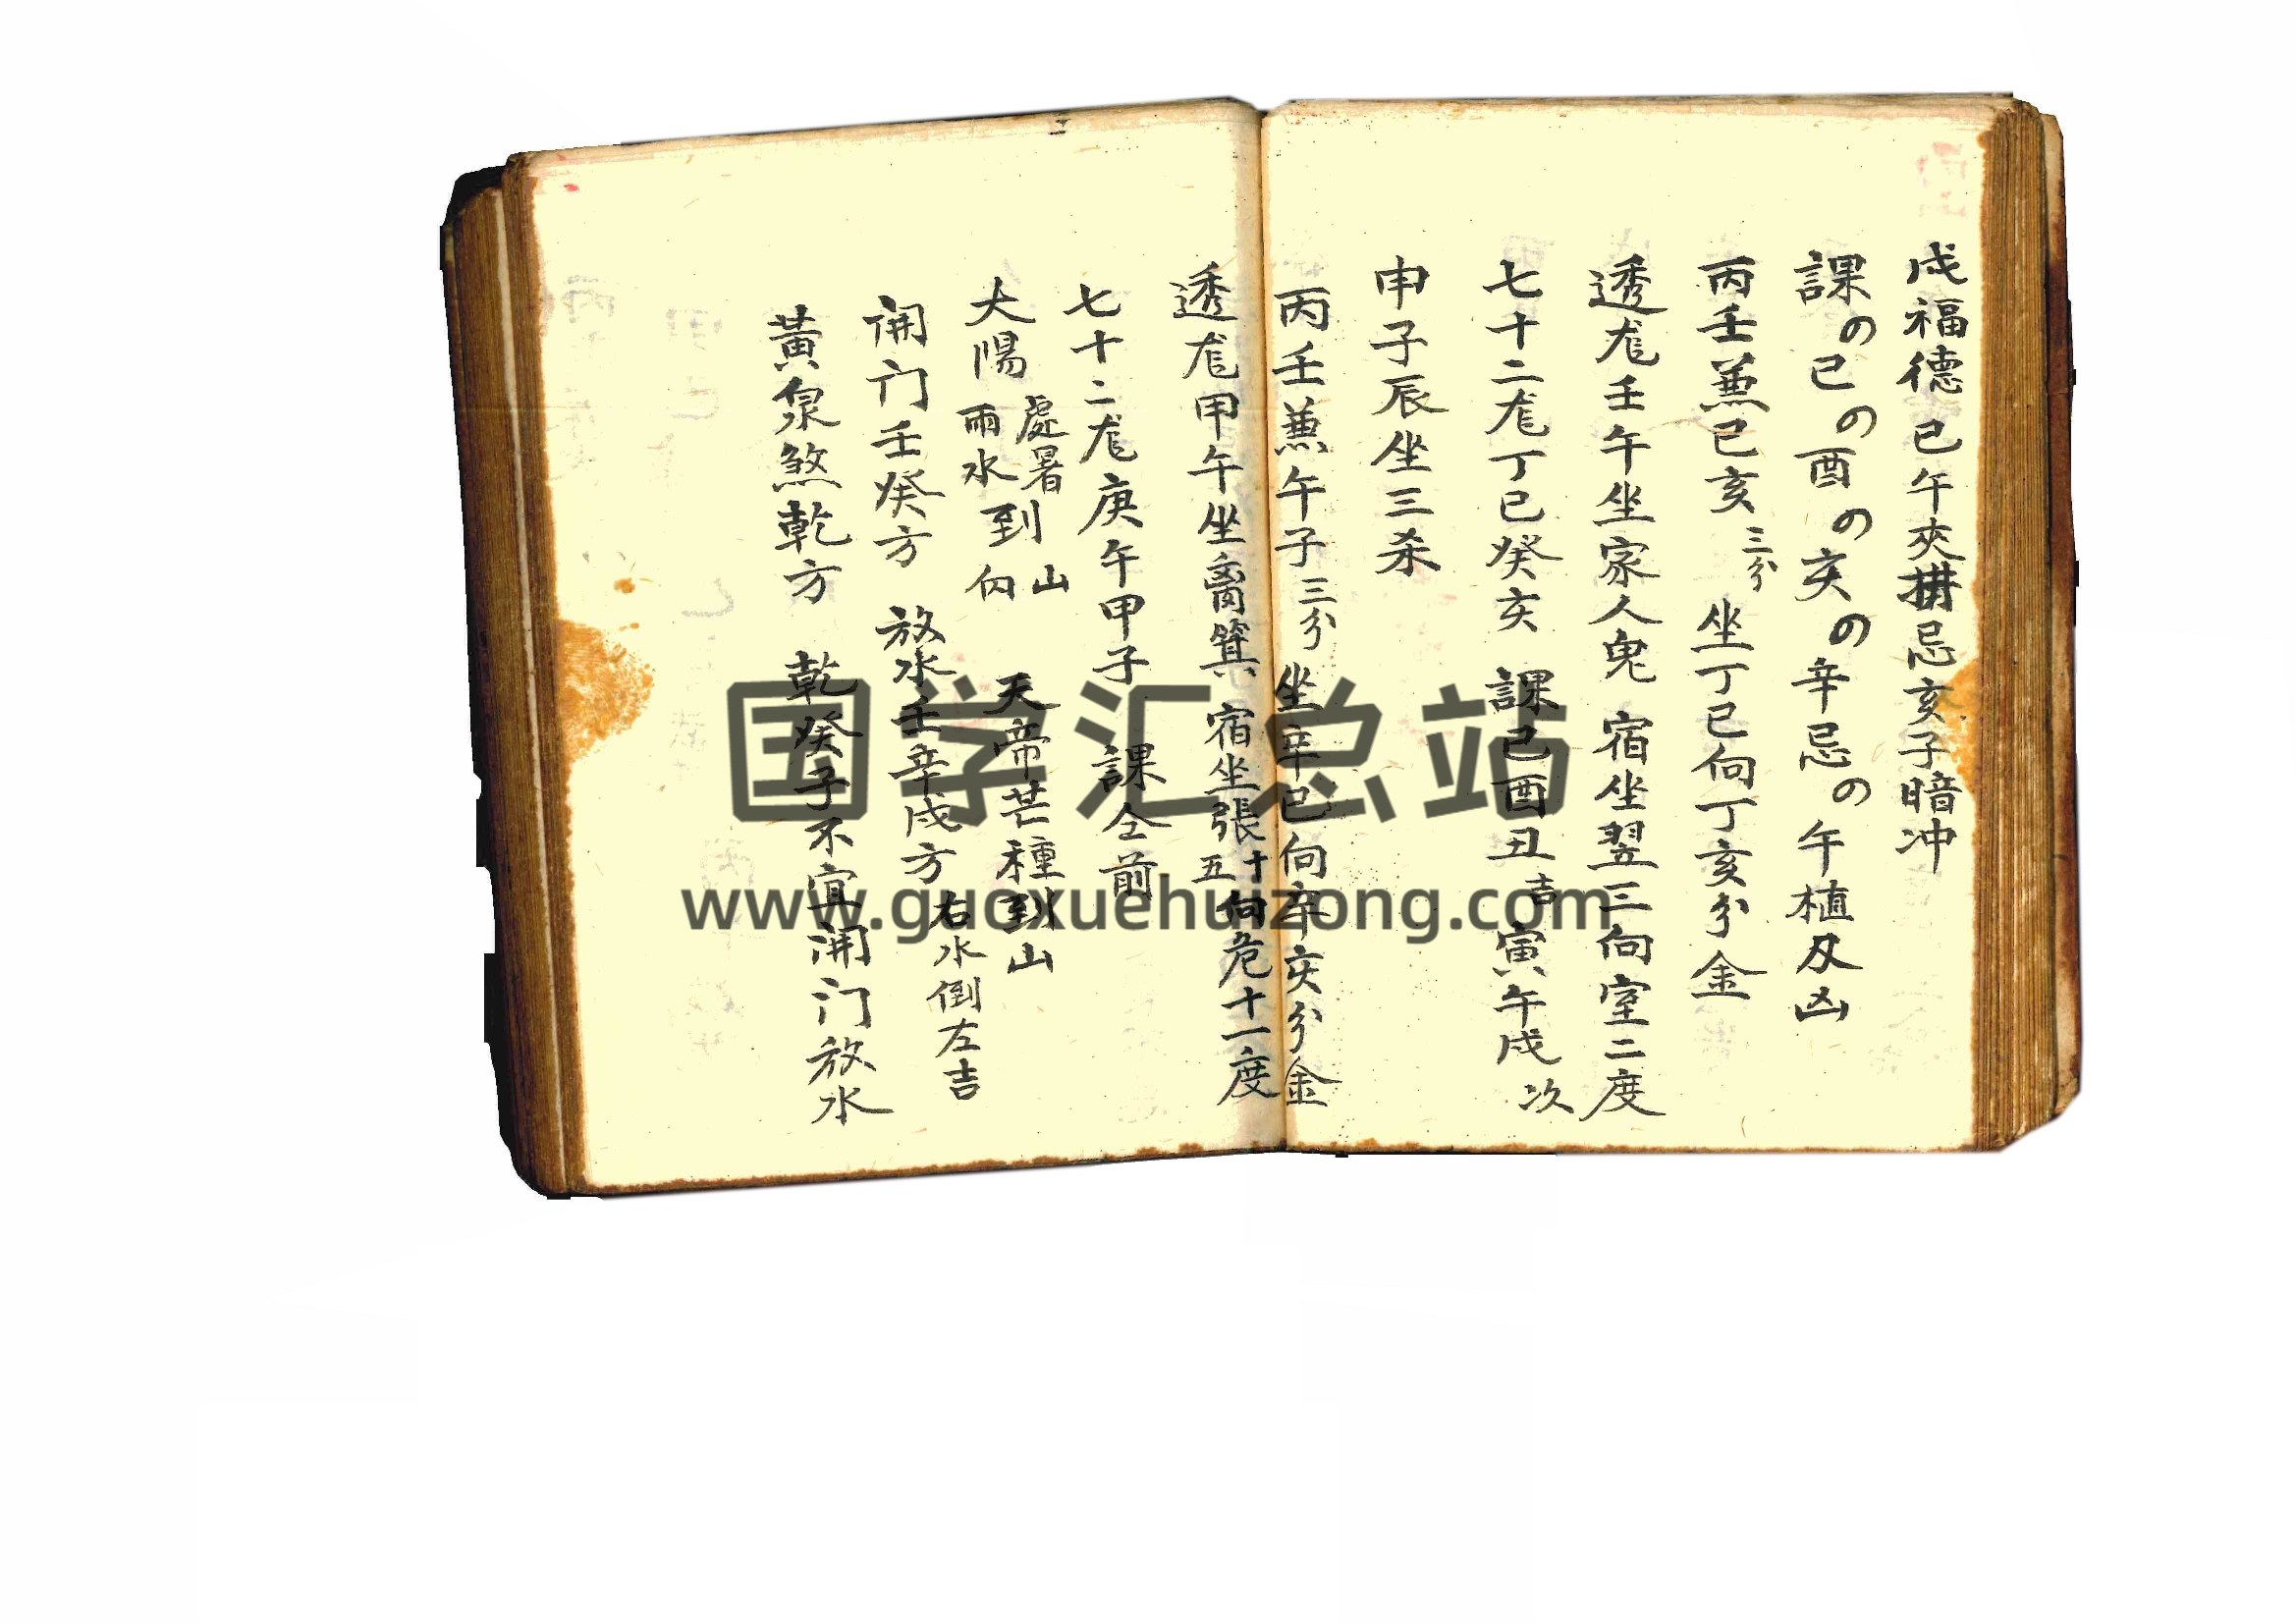 戌福德巳午夾拱忌亥子暗冲
課の巳の酉の亥の辛忌の午植及凶
丙壬兼巳亥三分 坐丁巳向丁亥分金
透尨壬午坐家人鬼 宿坐翌三向室二度
七十二尨丁巳癸亥 課巳酉丑吉寅午戌次
申子辰坐三杀
丙壬兼午子三分 坐辛巳向辛亥分金
透尨甲午坐离箕 宿坐張十五向危十一度
七十二尨庚午甲子 課仝前
太陽處暑雨水到山向 天帝芒種到山
開门壬癸方 放水壬辛戌方右水倒左吉
黃泉煞乾方 乾癸子不宜開门放水
国学汇总站
www.guoxuehuizong.com